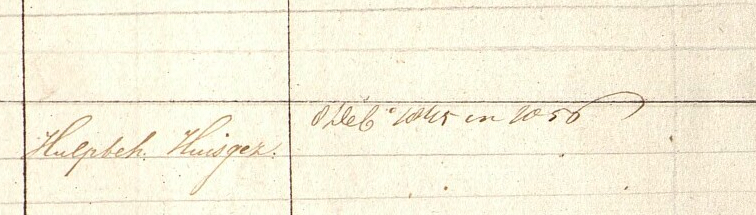 Hulpbeh. Huisgez.
1845 in 1856